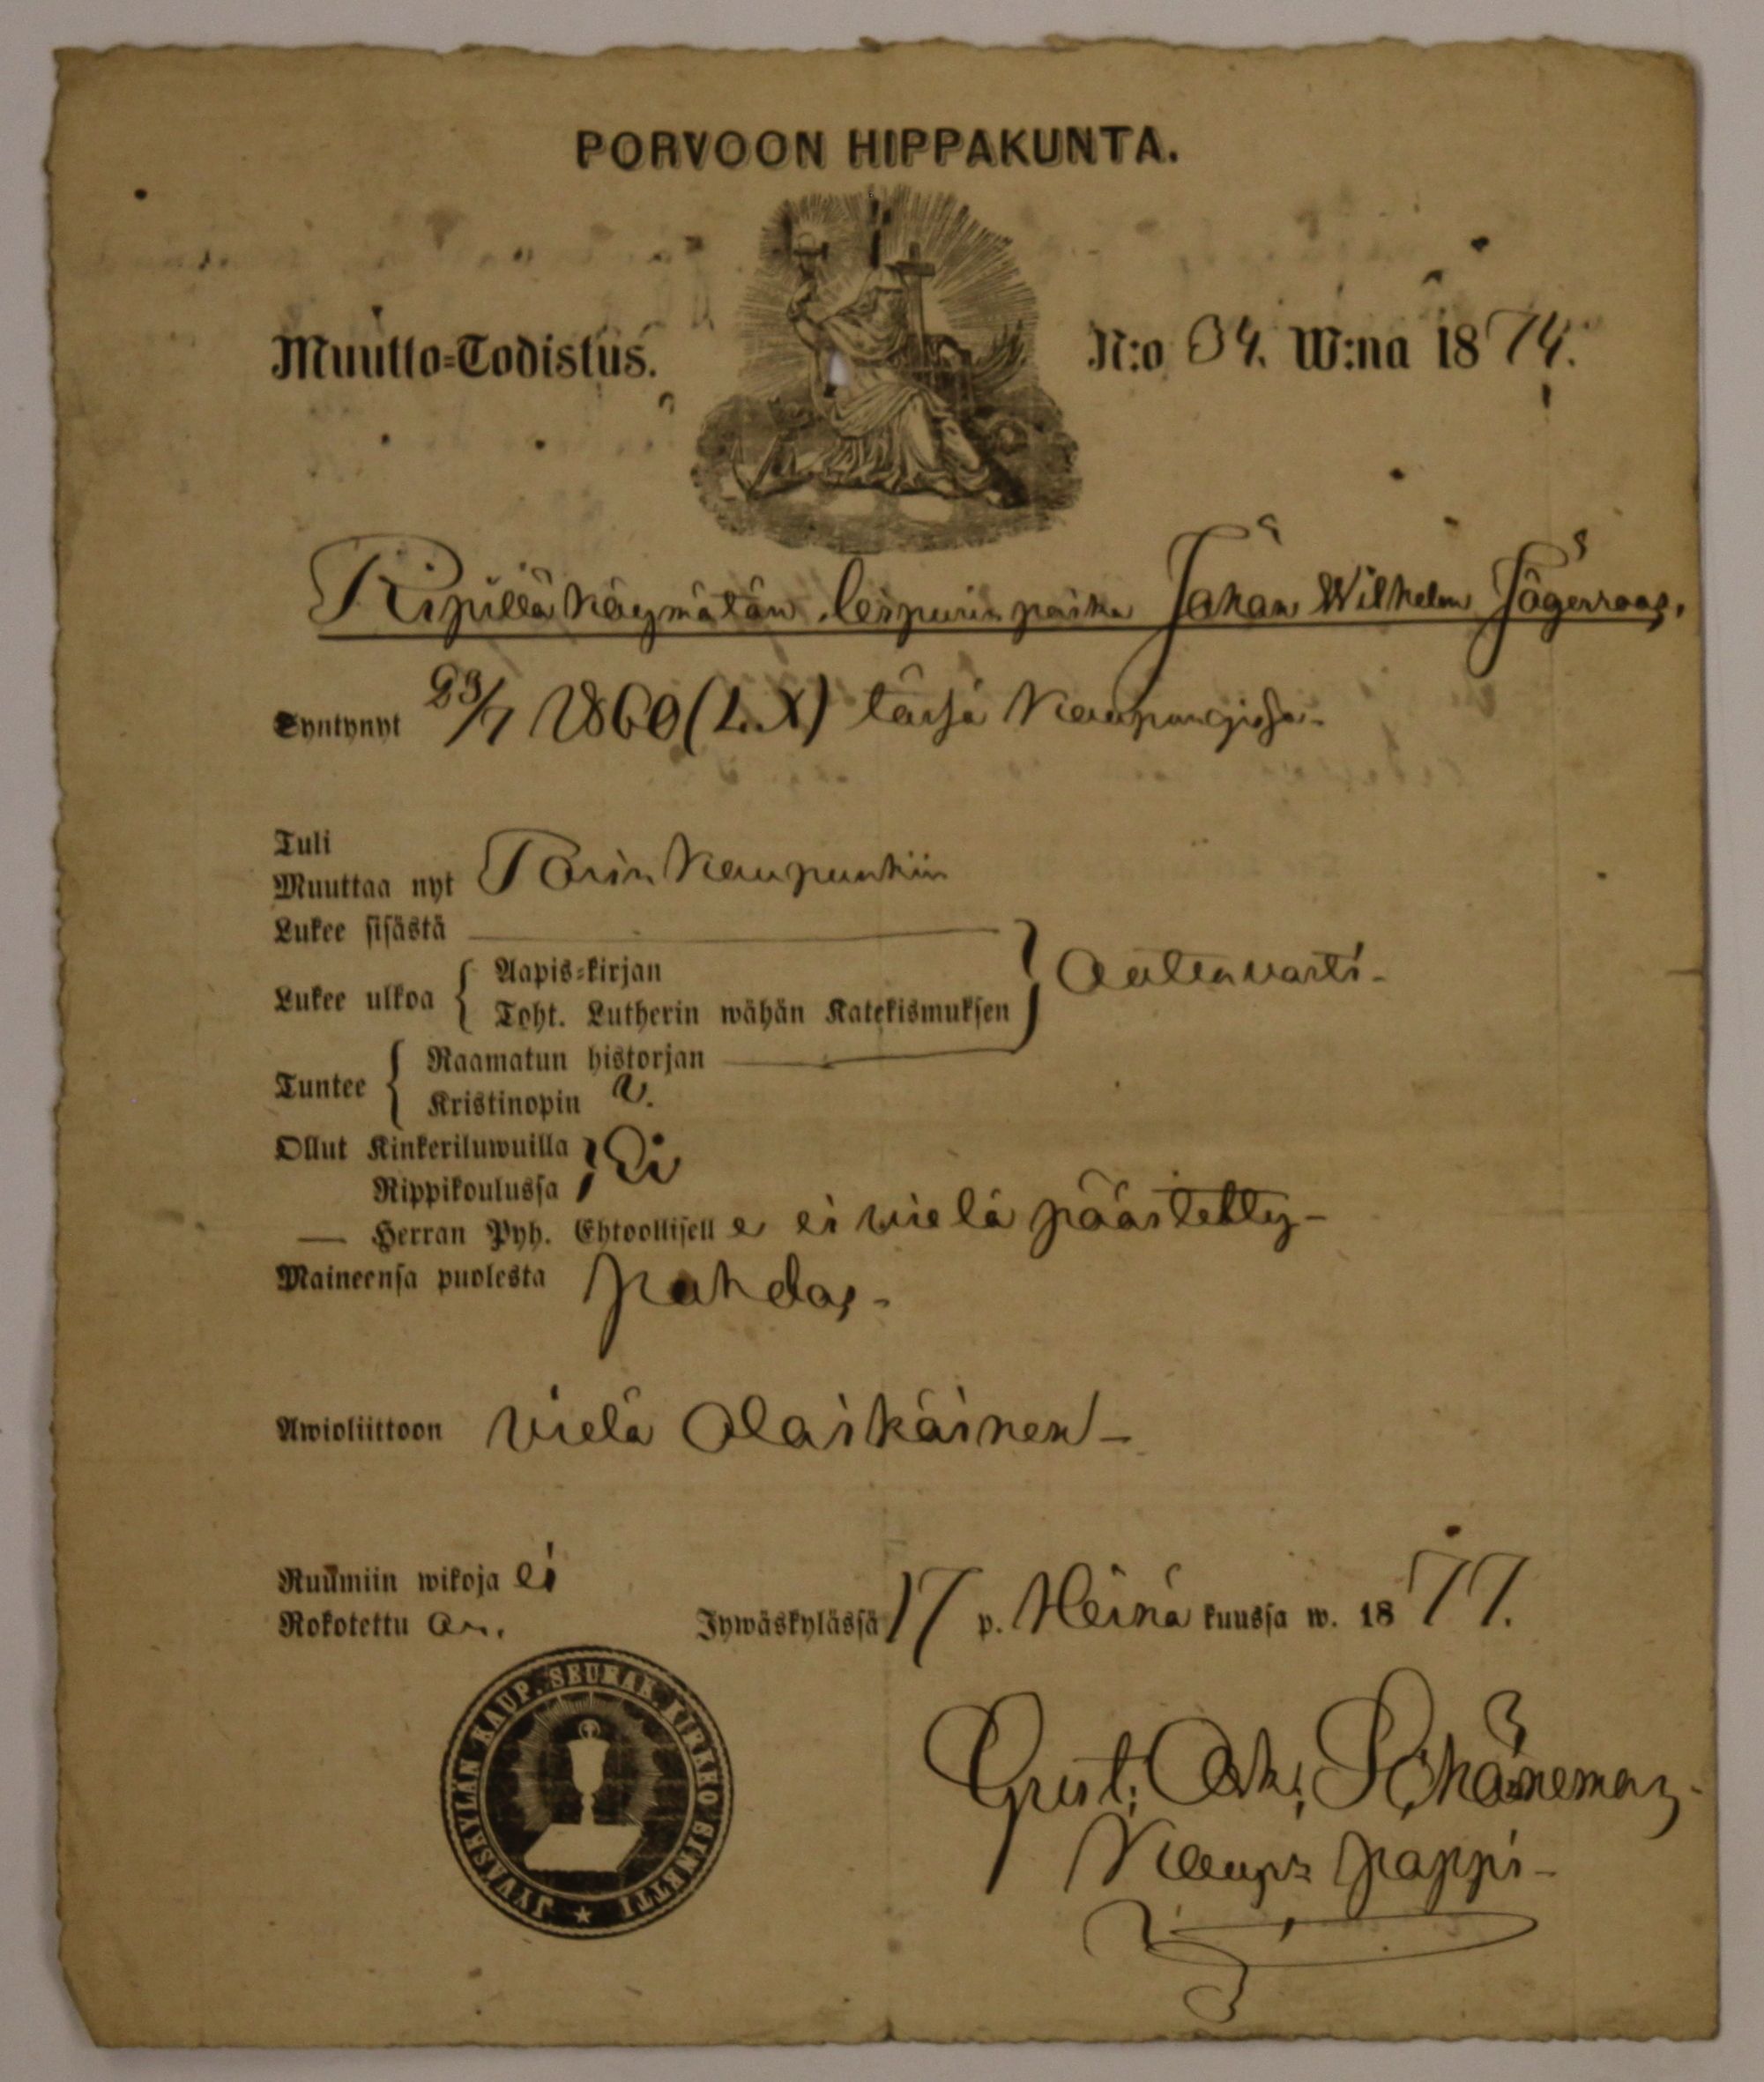 PORVOON HIPPAKUNTA.
Muutto=Todistus.
N:o 34. W:na 1874.
Ripillä käymätön leipurin poika Johan Wilhelm Jägerroos.
Syntynyt 23/7 1860 (LX) tässä kaupungissa
Tuli
Muuttaa nyt Porin kaupunkiin
Lukee sisästä
Lukee ulkoa { Aapis=kirjan
Toht. Lutherin wähän Katekismuksen } auttavasti
Tuntee { Raamatun historjan
Kristinopin v.
Ollut Kinkeriluwuilla
Rippikoulussa } Ei
— Herran Pyh. Ehtoollisella ei vielä päästetty
Maineensa puolesta puhdas
Awioliittoon vielä alaikäinen
Ruumiin wikoja ei
Rokotettu on.
Jywäskylässä 17 p. Heinä kuussa w. 1877.
JYVÄSKYLÄN KAUP. SEURAK. KIRKKO SINETTI
Gust. Ad. Schöneman
Kaup: pappi